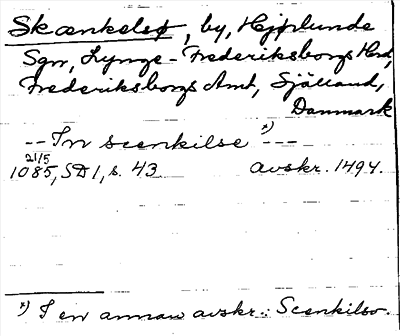 Skænkelsø, by, Hejrlunde
Sgn, Lynge-Frederiksborgs Hrd,
Frederiksborgs Amt, Sjælland,
Danmark
--In scenkilse x) ---
21/5
1085, SD 1, s. 43 avskr. 1494.
x) I en annan avskr.: Scenkilso.